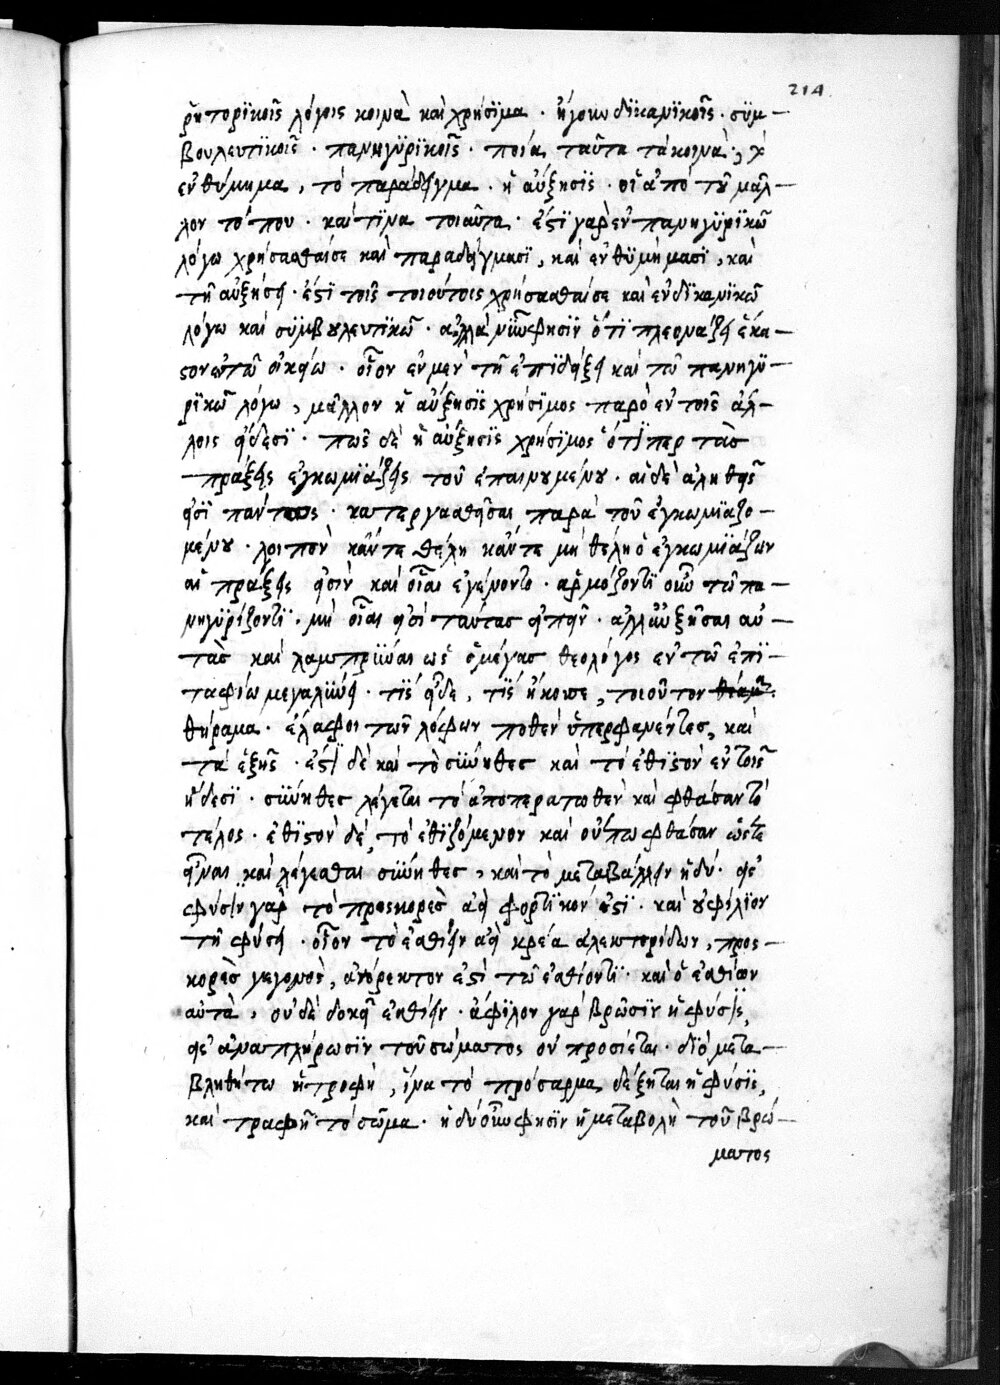 214
ῥητορϊκοῖς λόγοις κοινὰ καὶ χρήσϊμα · ἤγουν δϊκανϊκοῖς · σϋμ-
βουλευτϊκοῖς · πανηγϋρϊκοῖς · ποία ταῦτα τὰ κοινὰ ·
ενθύμημα, τὸ παράδειγμα · ἡ αὔξησϊς · οἱ ἀπὸ τοῦ μᾶλ-
λον τόπου · καί τϊνα τοιαῦτα · ἔστϊ γὰρ ἐν πανηγϋρϊκῶ
λόγω χρήσασθαί σε καὶ παραδείγμασϊ, καὶ ενθϋμήμασϊ, καὶ
τῆ αὐξήσει · ἔστϊ τοῖς τοιούτοις χρήσασθαί σε καὶ εν δϊκανϊκῶ
λόγω καὶ σϋμβουλευτϊκῶ · ἀλλὰ νῦν φησϊν ὅτϊ πλεονάζει ἕκα-
στον ἐν τῶ οἰκείω · οἷον εν μὲν τῆ ἐπϊδείξει καὶ τῶ πανηγϋ
ρϊκῶ λόγω, μᾶλλον ἡ αὔξησϊς χρήσϊμος παρὸ εν τοῖς ἄλ-
λοις εἴδεσϊ · πῶς δὲ ἡ αὔξησϊς χρήσϊμος ὅτϊ περ τὰς
πράξεις εγκωμϊάζεις τοῦ ἐπαινουμένου · αἱ δὲ ἀληθεῖς
εἰσὶ πάντως · κατεργασθεῖσαι παρὰ τοῦ ἐγκωμϊαζο-
μένου · λοιπὸν κἄν τε θέλη κἄν τε μὴ θέλη ὁ ἐγκωμϊάζων
αἱ πράξεις εἰσὶν καὶ οἷαι εγένοντο · ἁρμόζοντϊ οὖν τῶ πα-
νηγϋρίζοντϊ · μὴ οἷαι εἰσὶ ταύτας εἰπεῖν · ἀλλ' αὐξῆσαι αὐ-
τὰς καὶ λαμπρῦναι ως ὁ μέγας θεολόγος εν τῶ ἐπϊ-
ταφίω μεγαλύνει · τίς εἶδε, τίς ἤκουσε, τοιοῦτον
θήραμα · ἔλαφοι τῶν λόφων ποθὲν ὑπερφανέντες, καὶ
τὰ ἑξῆς · ἔστϊ δὲ καὶ τὸ σύνηθες καὶ τὸ ἐθϊστὸν εν τοῖς
ἡδέσϊ · σύνηθες λέγεται τὸ ἀποπερατωθὲν καὶ φθάσαν τὸ
τέλος · ἐθϊστὸν δὲ, τὸ ἐθϊζόμενον καὶ οὔπω φθάσαν ὥστε
εἶναι καὶ λέγεσθαι σύνηθες, καὶ τὸ μεταβάλλειν ἡδύ · εἰς
φύσϊν γὰρ τὸ προσκορὲς ἀεὶ φορτϊκόν ἐστϊ · καὶ οὐ φίλϊον
τῆ φύσει · οἷον τὸ ἐσθίειν ἀεὶ κρέα ἀλεκτορίδων, προς-
κορὲς γεγονὸς, ἀνόρεκτον ἐστὶ τῶ ἐσθίοντϊ · καὶ ὁ ἐσθίων
αὐτὰ, οὐδὲ δοκεῖ ἐσθίειν · ἄφϊλον γὰρ βρῶσϊν ἡ φύσϊς,
εἰς ἀναπλήρωσϊν τοῦ σώματος οὐ προσίεται · δϊὸ μετα-
βληθήτω ἡ τροφὴ, ἵνα τὸ πρόσαρμα δέξηται ἡ φύσϊς,
καὶ τραφῆ τὸ σῶμα · ἡδὺ οὖν φησϊν ἡ μεταβολὴ τοῦ βρώ-
ματος